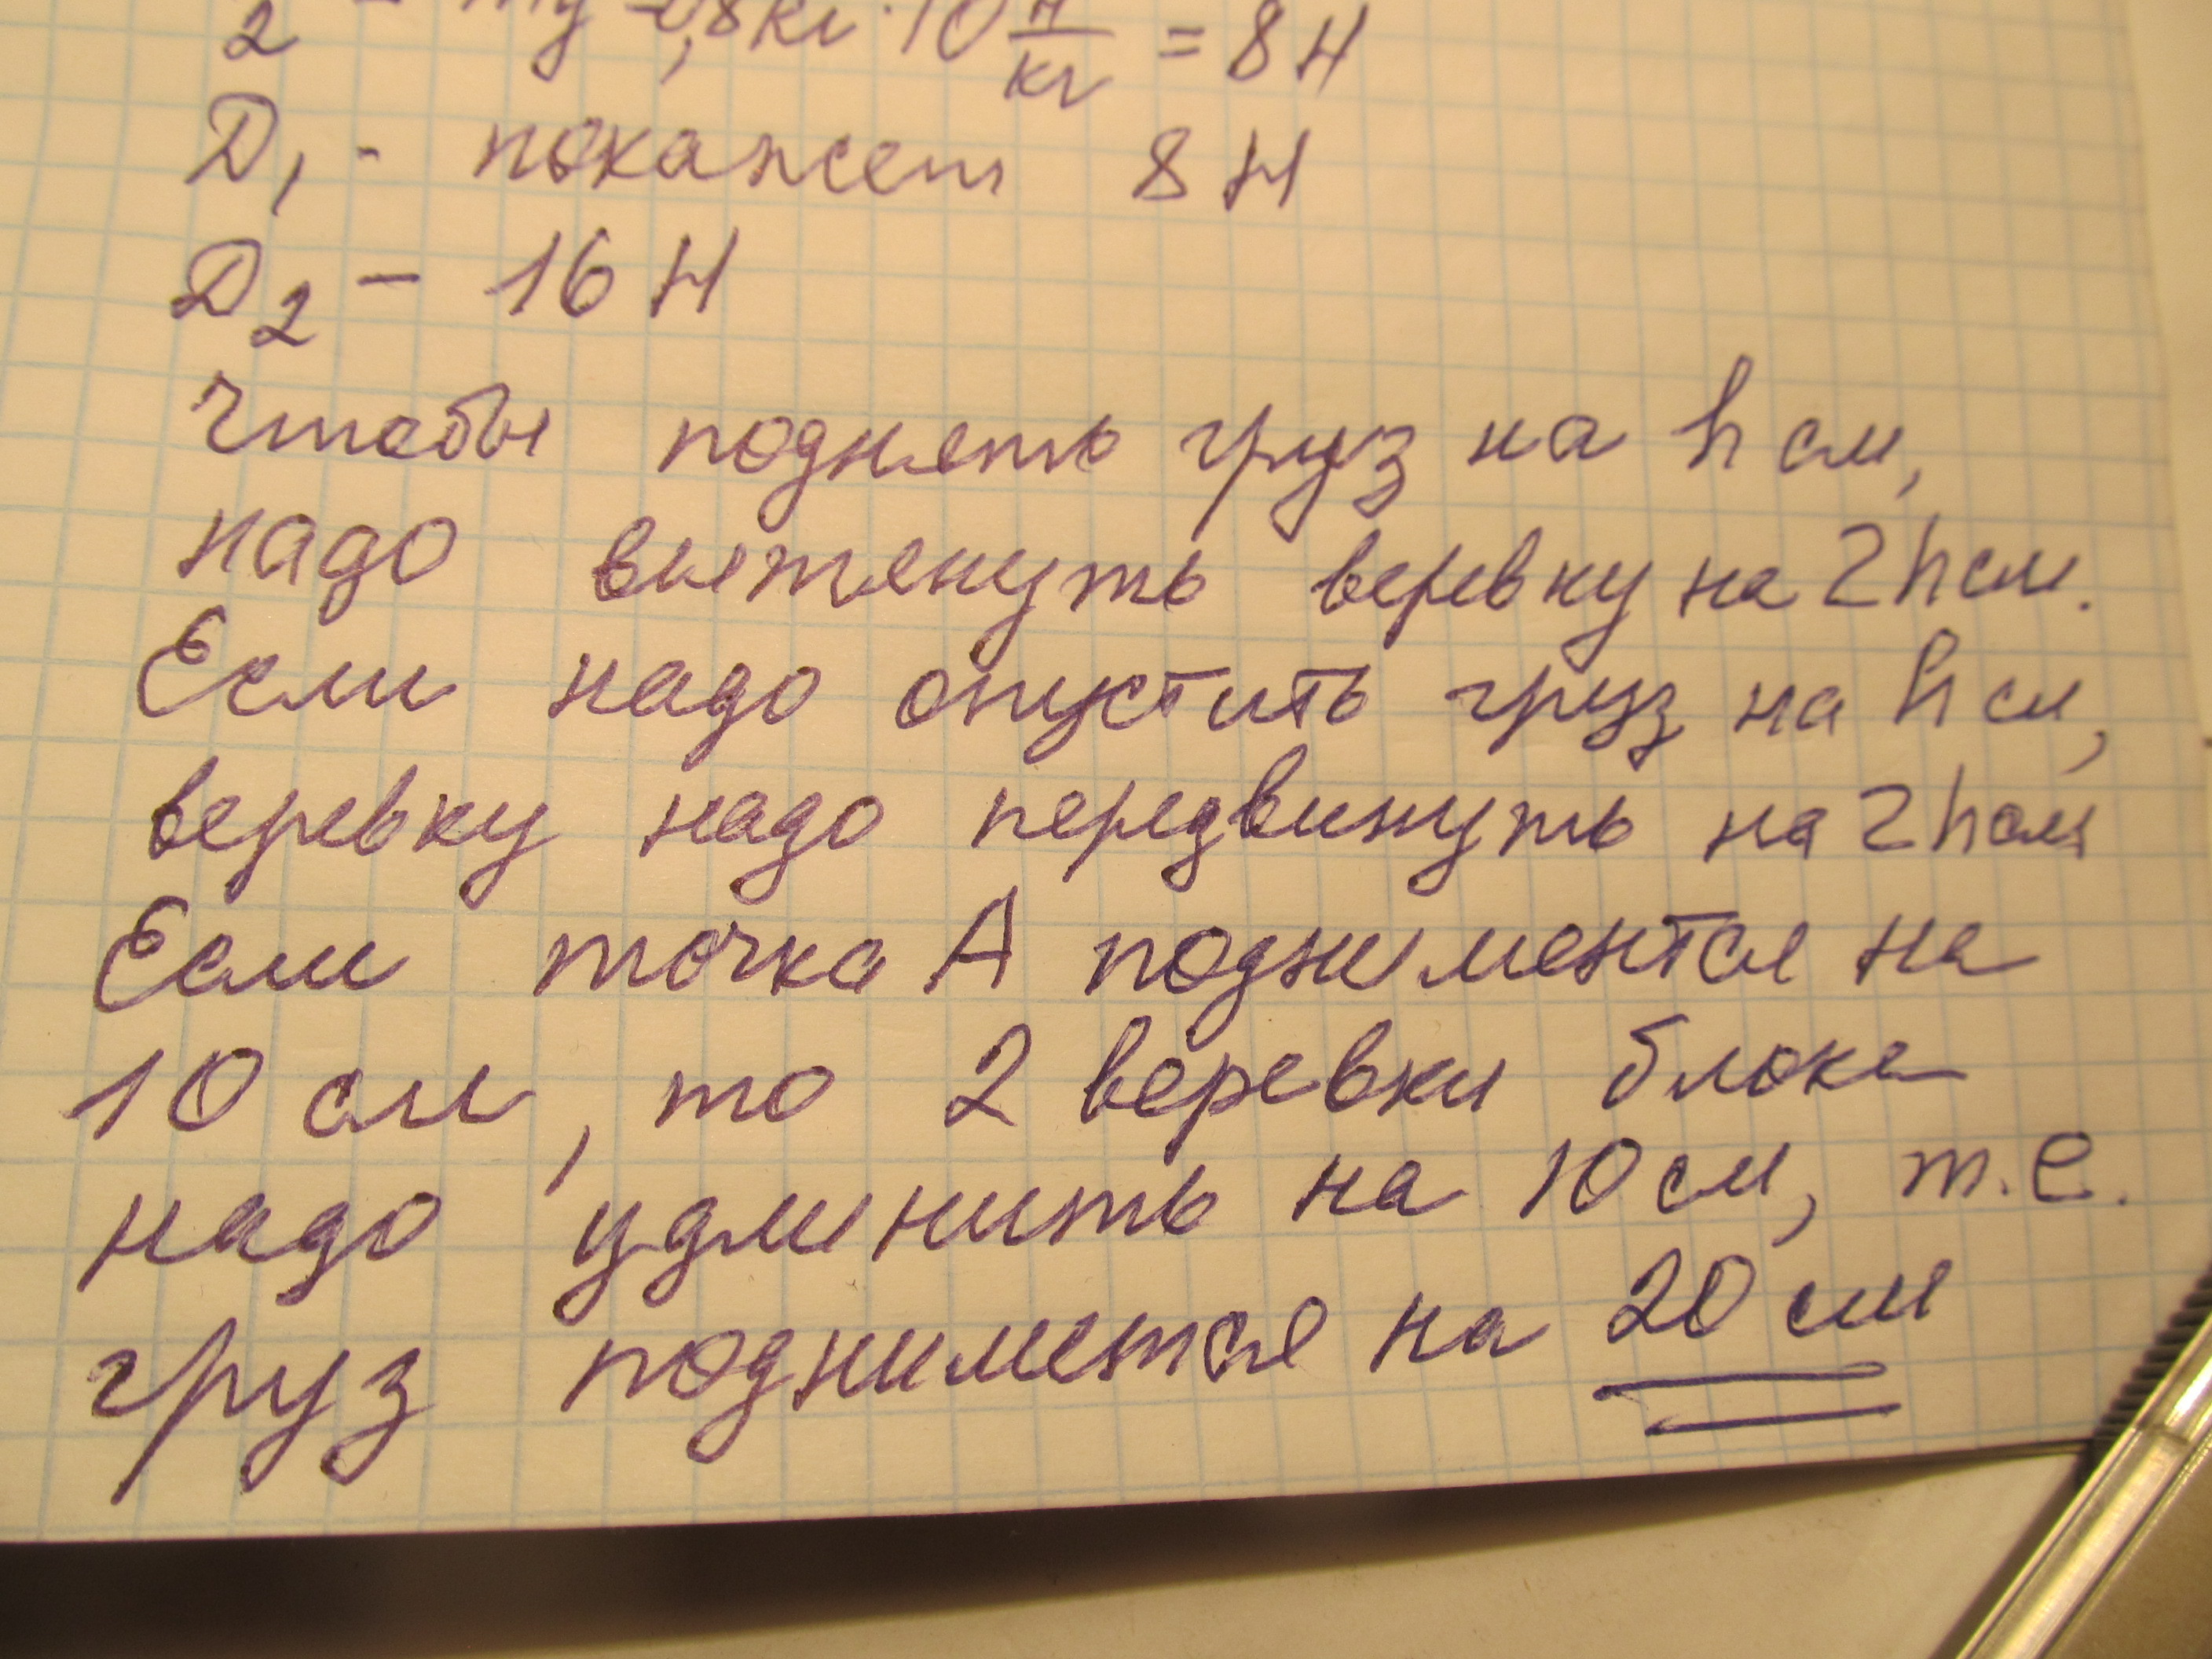 2 = mg = 0,8кг · 10 Н/кг = 8 Н
D₁ - покажет 8 Н
D₂ - 16 Н
Чтобы поднять груз на h см,
надо вытянуть веревку на 2h см.
Если надо опустить груз на h см,
веревку надо передвинуть на 2h см
Если точка А поднимется на
10 см, то 2 веревки блока
надо удлинить на 10 см, т.е.
груз поднимется на 20 см